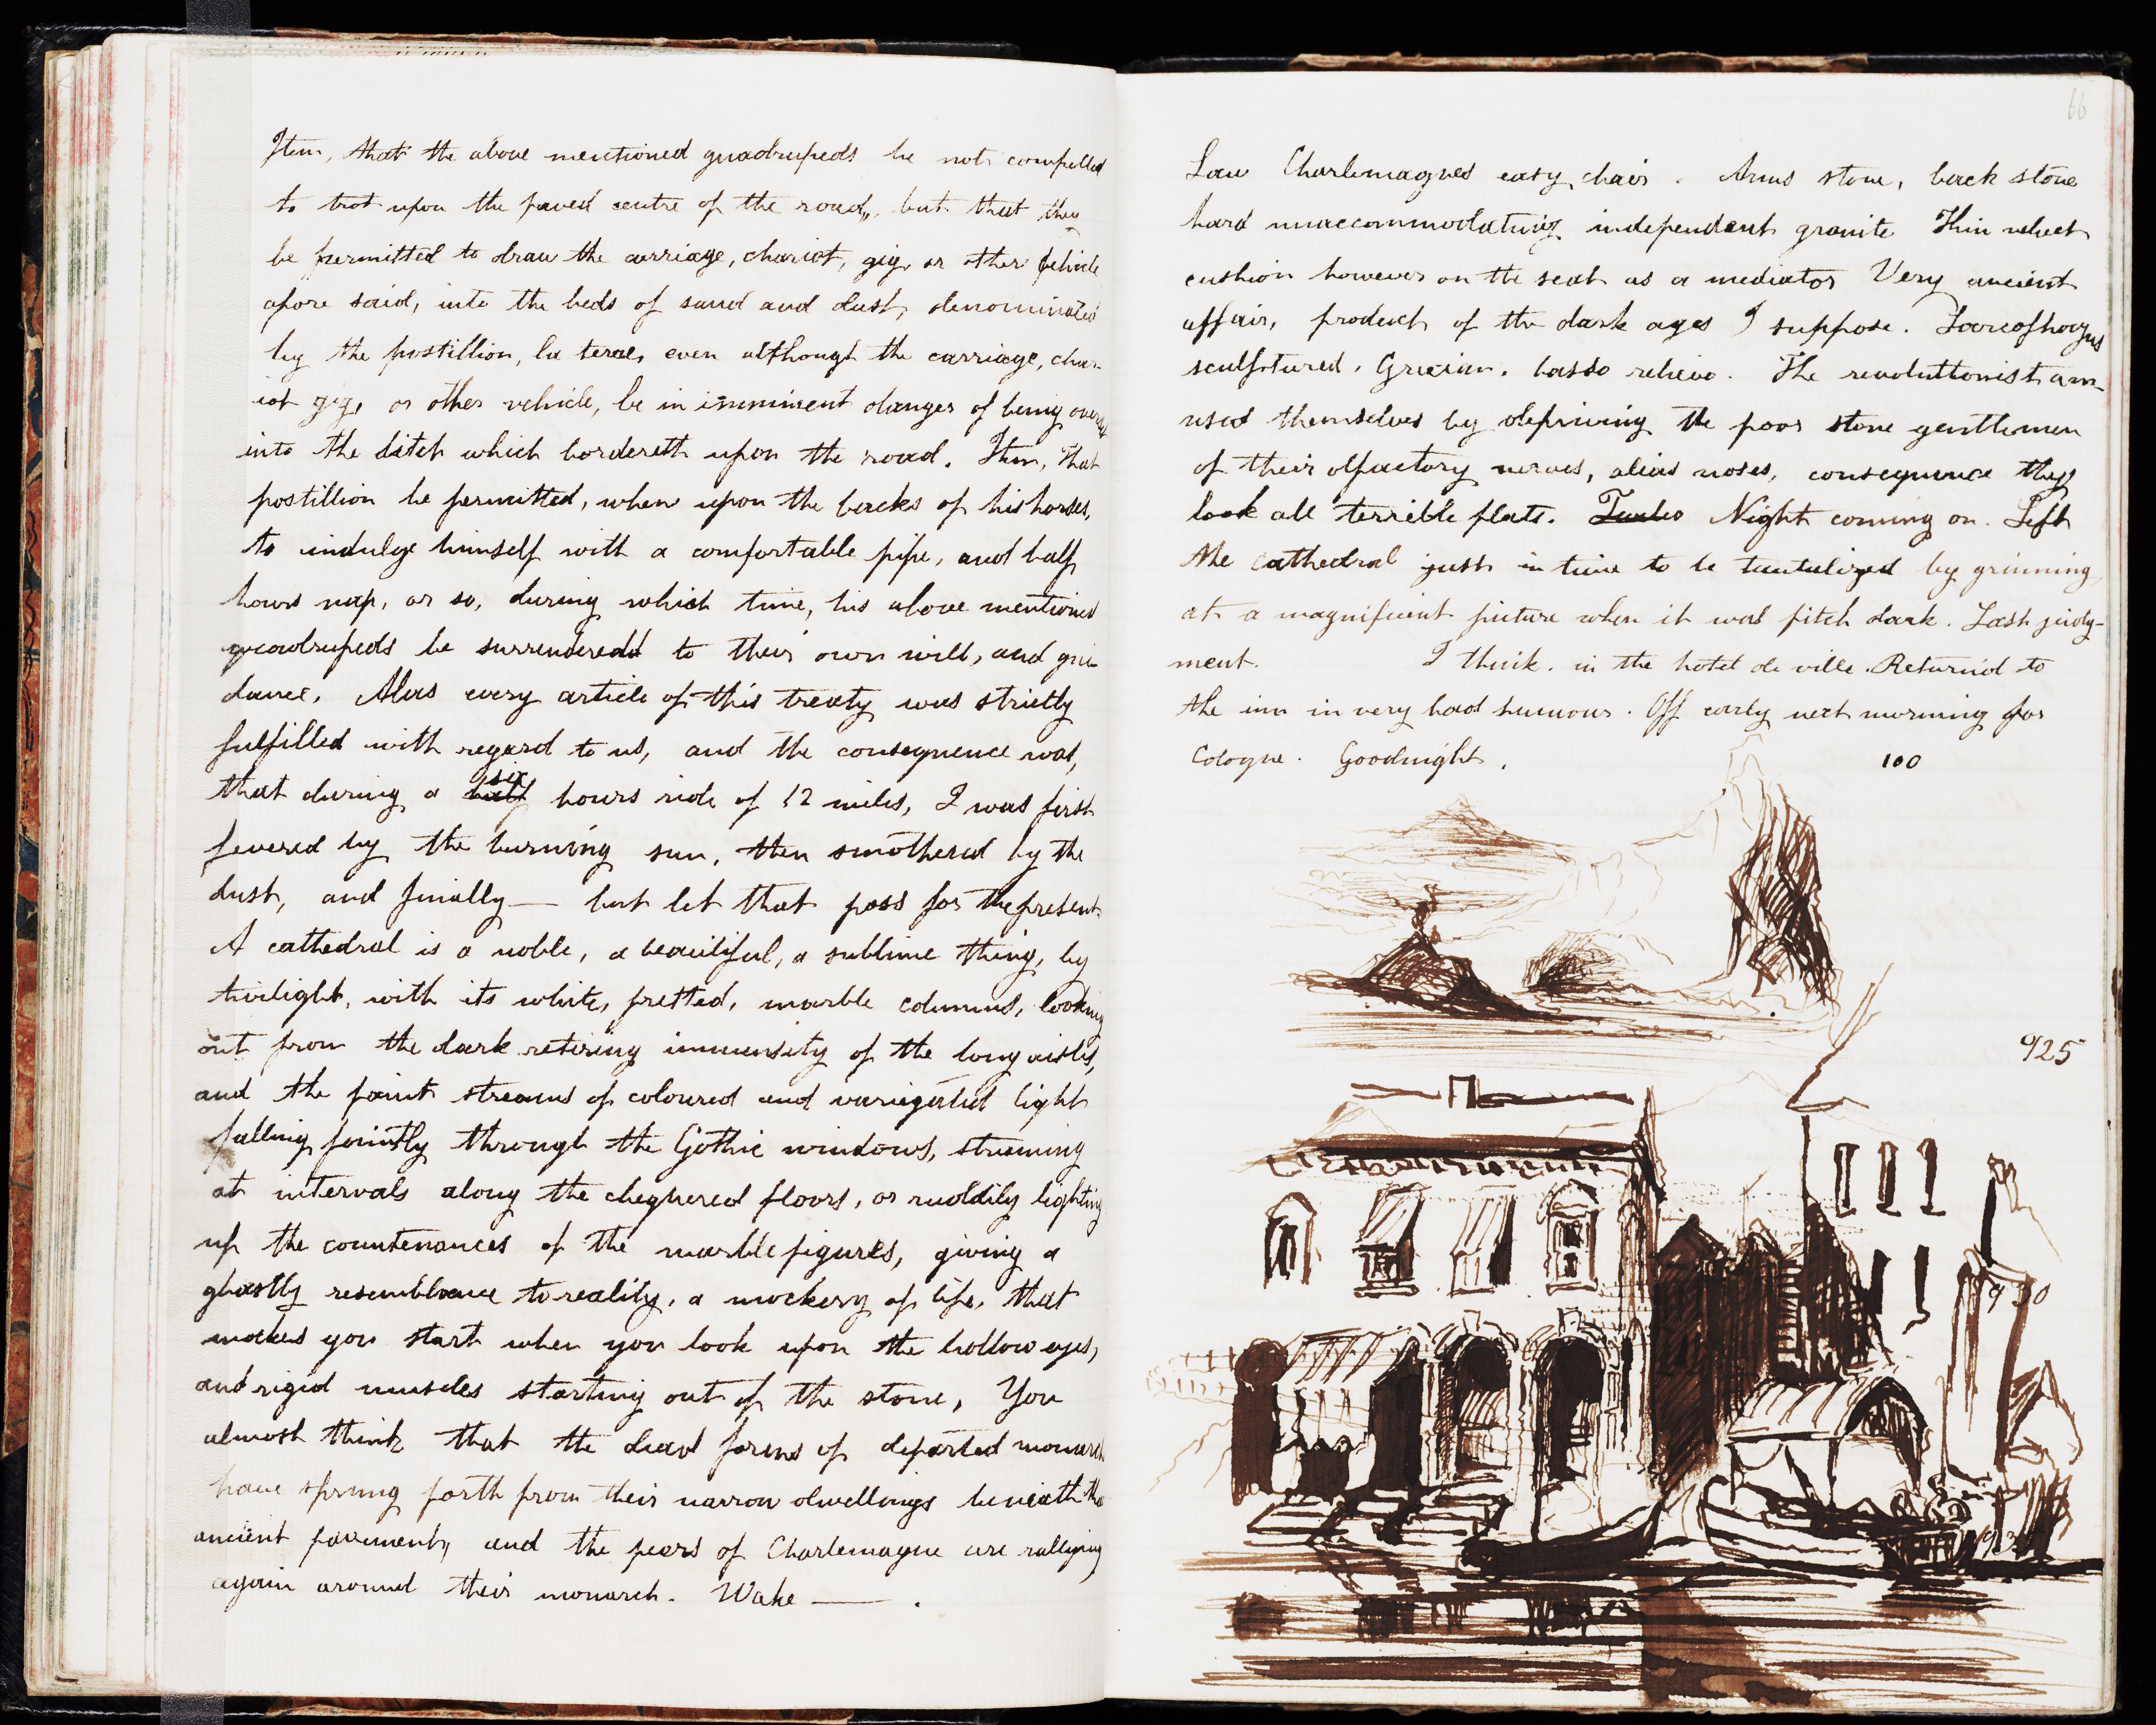 Item, that the above mentioned quadrupeds be not compelled
to trot upon the paved centre of the road, but that they
be permitted to draw the carriage, chariot, gig, or other vehicle
afore said, into the beds of sand and dust, denominated
by the postillion, la terre, even although the carriage, char-
iot gig, or other vehicle, be in imminent danger of being overset
into the ditch which bordereth upon the road. Item, that
postillion be permitted, when upon the backs of his horses,
to indulge himself with a comfortable pipe, and half
hours nap, or so, during which time, his above mentioned
quadrupeds be surrendered to their own will, and gui
dance. Alas every article of this treaty was strictly
fulfilled with regard to us, and the consequence was,
that during a half six hours ride of 12 miles, I was first
fevered by the burning sun, then smothered by the
dust, and finally— but let that pass for the present
A cathedral is a noble, a beautiful, a sublime thing, by
twilight, with its white, fretted, marble columns, looking
out from the dark retiring immensity of the long aisles,
and the faint streams of coloured and variegated light
falling faintly through the Gothic windows, streaming
at intervals along the chequered floors, or ruddily lighting
up the countenances of the marble figures, giving a
ghastly resemblance to reality, a mockery of life, that
makes you start when you look upon the hollow eyes,
and rigid muscles starting out of the stone, You
almost think that the dead forms of departed monarchs
have sprung forth from their narrow dwellings beneath the
ancient pavement, and the peers of Charlemagne are rallying
again around their monarch. Wake — .
66
Saw Charlemagnes easy chair. Arms stone, back stone
hard unaccommodating independent granite Thin velvet
cushion however on the seat as a mediator Very ancient
affair, product of the dark ages I suppose. Sarcophagus
sculptured, Grecian, basso relievo. The revolutionist am-
used themselves by depriving the poor stone gentlemen
of their olfactory nerves, alias noses, consequence they
look all terrible flats. Night coming on. Left
the cathedral just in time to be tantalized by grinning
at a magnificent picture when it was pitch dark. Last judg-
ment. I think. in the hotel de ville. Return'd to
the inn in very bad humour. Off early next morning for
Cologne. Goodnight.
100
925
930
935